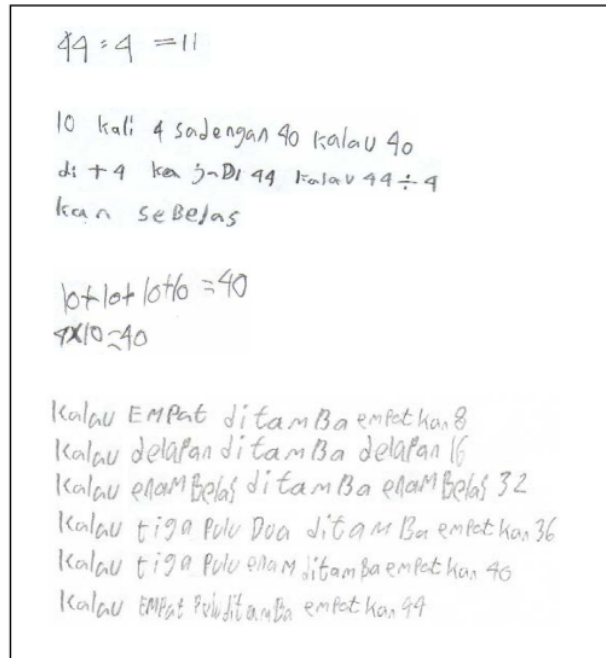 44 : 4 = 11
10 kali 4 sadengan 40 kalau 40
di + 4 kan jaDI 44 kalau 44 ÷ 4
kan seBelas
10+10+10+10 = 40
4x10=40
Kalau EMPat ditamBa empat kan 8
Kalau delapan ditamBa delapan 16
Kalau enamBelas ditamBa enamBelas 32
Kalau tiga Pulu Dua ditamBa empat kan 36
Kalau tiga Pulu enam ditamBa empat kan 40
Kalau EMPat Pulu ditamBa empat kan 44